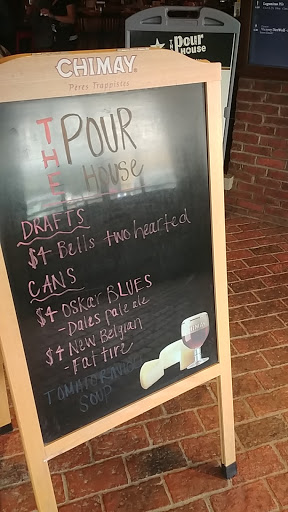 CHIMAY
Pères Trappistes
THE POUR
House
DRAFTS
$4 Bells two hearted
CANS
$4 OSkar BLUES
- Dales pale ale
$4 New Belgian
- Fat tire
SOUP
THE pour
HOUSE